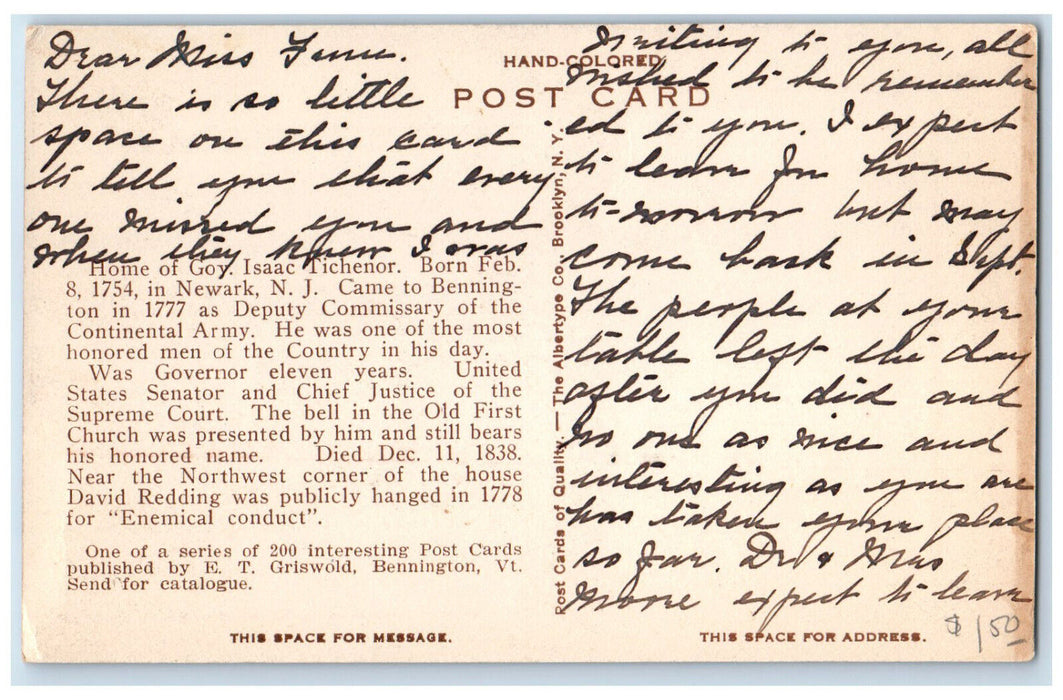 Dear Miss
There is so little
space on this card
to tell you that every
one missed you and
when they knew I was
writing to you, all
wished to be remember
ed to you. I expect
to leave for home
to-morrow but may
come back in Sept.
The people at your
table left the day
after you did and
no one as nice and
interesting as you are
has taken your place
so far. Dr & Mrs
expect to leave
HAND-COLORED
POST CARD
Home of Gov. Isaac Tichenor. Born Feb.
8, 1754, in Newark, N. J. Came to Benning-
ton in 1777 as Deputy Commissary of the
Continental Army. He was one of the most
honored men of the Country in his day.
Was Governor eleven years. United
States Senator and Chief Justice of the
Supreme Court. The bell in the Old First
Church was presented by him and still bears
his honored name. Died Dec. 11, 1838.
Near the Northwest corner of the house
David Redding was publicly hanged in 1778
for "Enemical conduct".
One of a series of 200 interesting Post Cards
published by E. T. Griswold, Bennington, Vt.
Send for catalogue.
Post Cards of Quality. — The Albertype Co., Brooklyn, N. Y.
THIS SPACE FOR MESSAGE.
THIS SPACE FOR ADDRESS.
$1.50